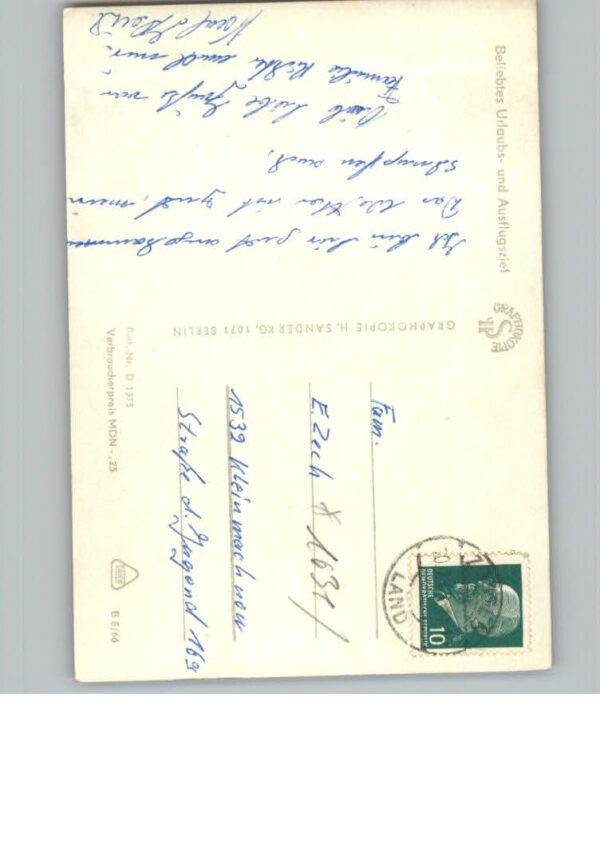 Beliebtes Urlaubs- und Ausflugsziel
Ich bin hier gut angekommen
Das Wetter ist gut, mein
Schnupfen auch.
Viele liebe Grüße von
Familie
GRAPHOKOPIE
HS
GRAPHOKOPIE H. SANDER KG, 1071 BERLIN
Best.-Nr. D 1375
Verbraucherpreis MDN -,25
Fam.
E. Zech * 1631/
1532 Kleinmachnow
Straße d. Jugend 169
LAND
DEUTSCHE
DEMOKRATISCHE REPUBLIK
10
B 6/66